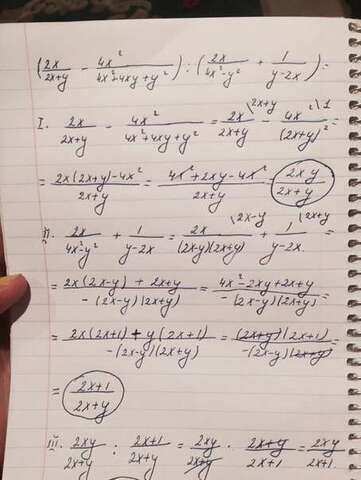 (2x/(2x+y) - 4x²/(4x²+4xy+y²)) : (2x/(4x²-y²) + 1/(y-2x)) =
I. 2x/(2x+y) - 4x²/(4x²+4xy+y²) = 2x/(2x+y) \2x+y - 4x²/(2x+y)² \1 =
= (2x(2x+y)-4x²)/(2x+y) = (4x²+2xy-4x²)/(2x+y) = 2xy/(2x+y)
II. 2x/(4x²-y²) + 1/(y-2x) = 2x/((2x-y)(2x+y)) \2x-y + 1/(y-2x) \2x+y =
= (2x(2x-y)+2x+y)/(-(2x-y)(2x+y)) = (4x²-2xy+2x+y)/(-(2x-y)(2x+y)) =
= (2x(2x+1)+y(2x+1))/(-(2x-y)(2x+y)) = ((2x+y)(2x+1))/(-(2x-y)(2x+y)) =
= (2x+1)/(2x+y)
III. 2xy/(2x+y) : (2x+1)/(2x+y) = 2xy/(2x+y) · (2x+y)/(2x+1) = 2xy/(2x+1)